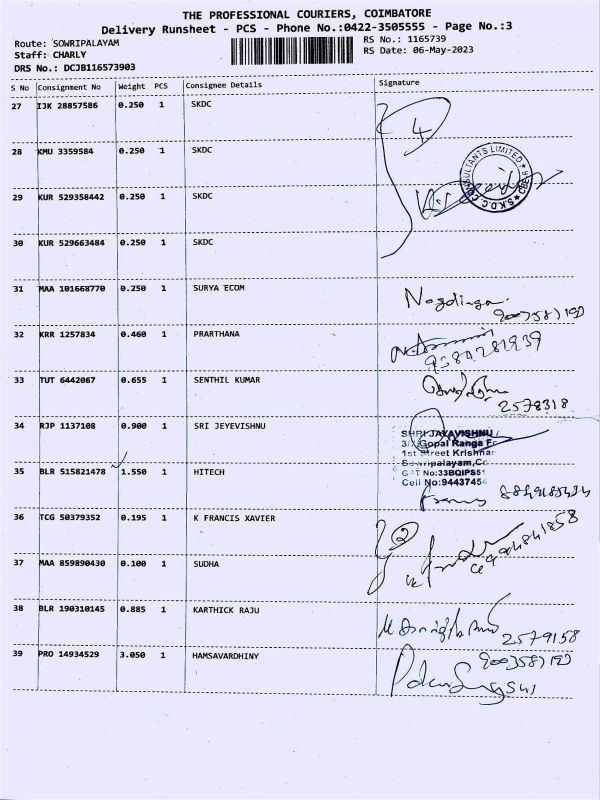 THE PROFESSIONAL COURIERS, COIMBATORE
Delivery Runsheet - PCS - Phone No.:0422-3505555 - Page No.:3
Route: SOWRIPALAYAM
RS No.: 1165739
Staff: CHARLY
RS Date: 06-May-2023
DRS No.: DCJB116573903
S No Consignment No Weight PCS Consignee Details Signature
27 IJK 28857586 0.250 1 SKDC
4
28 KMU 3359584 0.250 1 SKDC
29 KUR 529358442 0.250 1 SKDC
S.K.D.C. CONSULTANTS LIMITED CBE-6
30 KUR 529663484 0.250 1 SKDC
31 MAA 101668770 0.250 1 SURYA ECOM
32 KRR 1257834 0.460 1 PRARTHANA
33 TUT 6442067 0.655 1 SENTHIL KUMAR
2578318
34 RJP 1137108 0.900 1 SRI JEYEVISHNU
SHRI JAYAVISHNU
Gopal Ranga
1st Street Krishna
Sowripalayam,Co
No:33BQIPS51
Cell No:9443745
35 BLR 515821478 1.550 1 HITECH
36 TCG 50379352 0.195 1 K FRANCIS XAVIER
2
37 MAA 859890430 0.100 1 SUDHA
38 BLR 190310145 0.885 1 KARTHICK RAJU
2579158
39 PRO 14934529 3.050 1 HAMSAVARDHINY